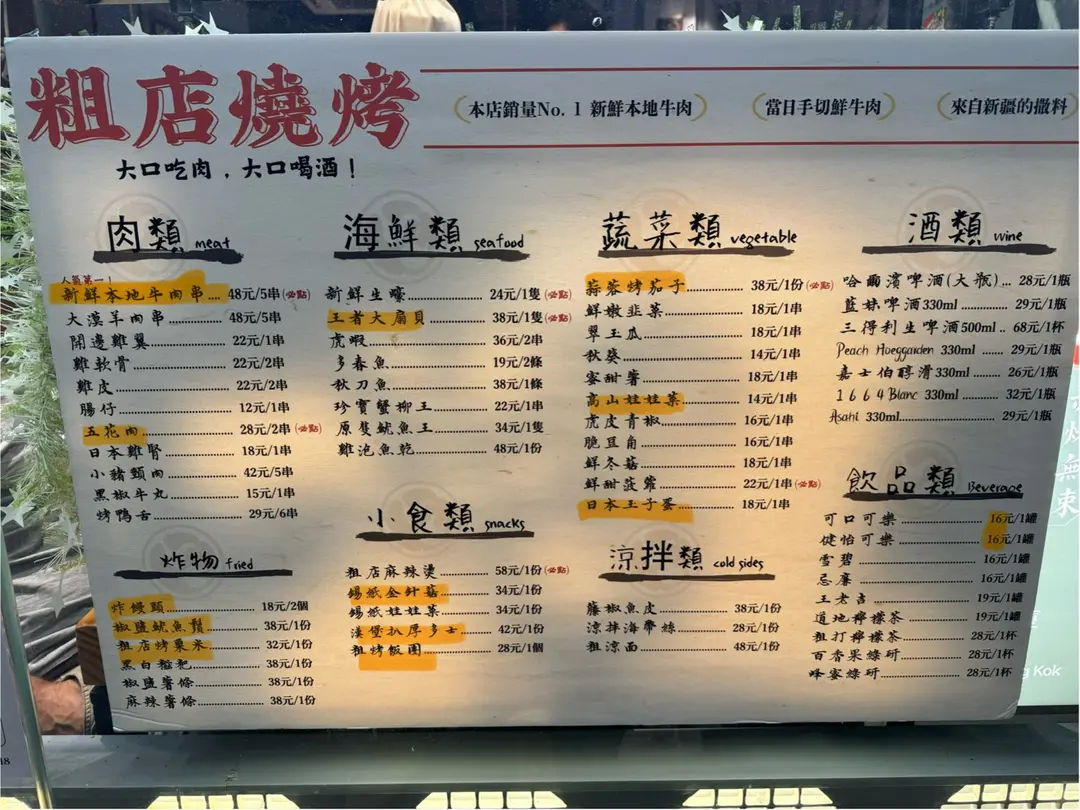 粗店燒烤
本店銷量No. 1 新鮮本地牛肉
當日手切鮮牛肉
來自新疆的撒料
大口吃肉，大口喝酒！
肉類 meat
人氣第一！
新鮮本地牛肉串.... 48元/5串(必點)
大漠羊肉串 48元/5串
開邊雞翼 22元/1串
雞軟骨 22元/2串
雞皮 22元/2串
腸仔 12元/1串
五花肉 28元/2串(必點)
日本雞腎 18元/1串
小豬頸肉 42元/5串
黑椒牛丸 15元/1串
烤鴨舌 29元/6串
炸物 fried
炸饅頭 18元/2個
椒鹽魷魚鬚 38元/1份
粗店烤粟米 32元/1份
黑白糍粑 38元/1份
椒鹽薯條 38元/1份
麻辣薯條 38元/1份
海鮮類 seafood
新鮮生蠔 24元/1隻(必點)
王者大扇貝 38元/1隻(必點)
虎蝦 36元/2串
多春魚 19元/2條
秋刀魚 38元/1條
珍寶蟹柳王 22元/1串
原隻魷魚王 34元/1隻
雞泡魚乾 48元/1份
小食類 snacks
粗店麻辣燙 58元/1份(必點)
錫紙金針菇 34元/1份
錫紙娃娃菜 34元/1份
漢堡扒厚多士 42元/1份
粗烤飯團 28元/1個
蔬菜類 vegetable
蒜蓉烤茄子 38元/1份(必點)
鮮嫩韭菜 18元/1串
翠玉瓜 18元/1串
秋葵 14元/1串
蜜甜薯 18元/1串
高山娃娃菜 14元/1串
虎皮青椒 16元/1串
脆豆角 16元/1串
鮮冬菇 18元/1串
鮮甜菠蘿 22元/1串(必點)
日本玉子蛋 18元/1串
涼拌類 cold sides
藤椒魚皮 38元/1份
涼拌海帶絲 28元/1份
粗涼面 48元/1份
酒類 wine
哈爾濱啤酒(大瓶)... 28元/1瓶
藍妹啤酒330ml 29元/1瓶
三得利生啤酒500ml .. 68元/1杯
Peach Hoeggarden 330ml 29元/1瓶
嘉士伯醇滑330ml 26元/1瓶
1664Blanc 330ml 32元/1瓶
Asahi 330ml 29元/1瓶
飲品類 Beverage
可口可樂 16元/1罐
健怡可樂 16元/1罐
雪碧 16元/1罐
忌廉 16元/1罐
王老吉 19元/1罐
道地檸檬茶 19元/1罐
粗打檸檬茶 28元/1杯
百香果綠研 28元/1杯
蜂蜜綠研 28元/1杯
g Kok